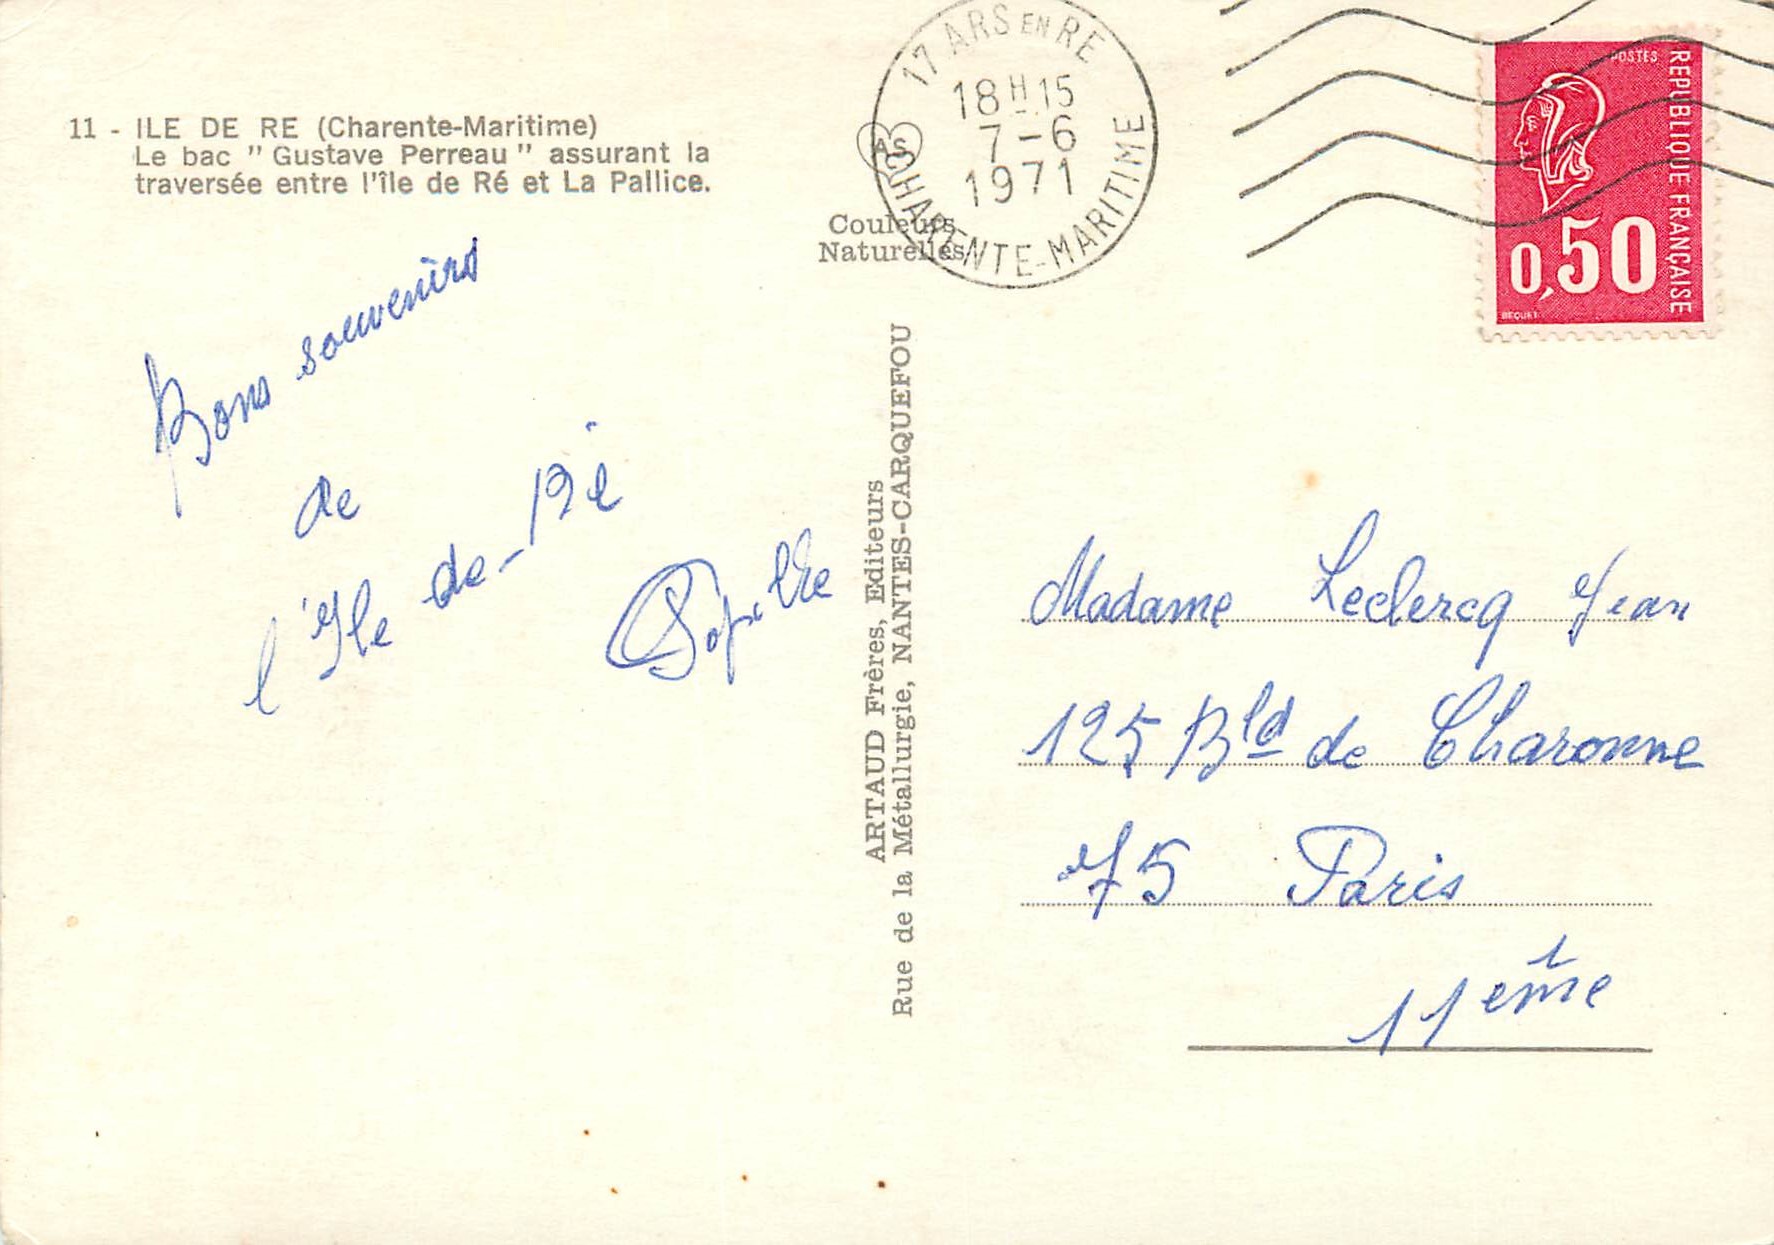 11 - ILE DE RE (Charente-Maritime)
Le bac " Gustave Perreau " assurant la
traversée entre l'île de Ré et La Pallice.
Bons souvenirs
de
l'Ile de-Ré
AS
Couleurs
Naturelles
ARTAUD Frères, Editeurs
Rue de la Métallurgie, NANTES-CARQUEFOU
17 ARS EN RE
18H15
7-6
1971
CHARENTE-MARITIME
POSTES
REPUBLIQUE FRANÇAISE
0,50
BEQUET
Madame Leclercq Jean
125 Bld de Charonne
75 Paris
11ème